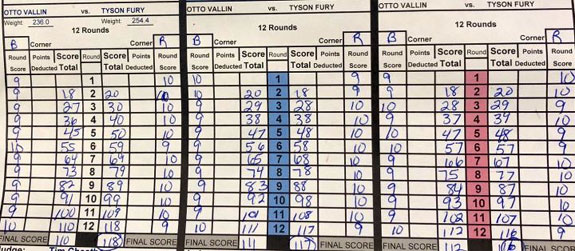 OTTO VALLIN vs. TYSON FURY OTTO VALLIN vs. TYSON FURY OTTO VALLIN vs. TYSON FURY
Weight 236.0 Weight: 254.4
12 Rounds 12 Rounds 12 Rounds
B Corner Corner R B Corner Corner R B Corner Corner R
Round Score Points Deducted Score Total Round Score Total Points Deducted Round Score Round Score Points Deducted Score Total Round Score Total Points Deducted Round Score Round Score Points Deducted Score Total Round Score Total Points Deducted Round Score
9 1 10 10 1 9 9 1 10
9 18 2 20 10 9 20 2 18 9 9 18 2 20 10
9 27 3 30 10 9 29 3 28 10 10 28 3 29 9
9 36 4 40 10 9 38 4 38 10 9 37 4 39 10
9 45 5 50 10 9 47 5 48 10 10 47 5 48 9
10 55 6 59 9 9 56 6 58 10 10 57 6 57 9
9 64 7 69 10 9 65 7 68 10 9 66 7 67 10
9 73 8 79 10 9 74 8 78 10 9 75 8 77 10
9 82 9 89 10 9 83 9 88 10 9 84 9 87 10
9 91 10 99 10 9 92 10 98 10 9 93 10 97 10
9 100 11 109 10 9 101 11 108 10 9 102 11 107 10
10 110 12 118 9 10 111 12 117 9 10 112 12 116 9
FINAL SCORE 110 118 FINAL SCORE FINAL SCORE 111 117 FINAL SCORE FINAL SCORE 112 116 FINAL SCORE